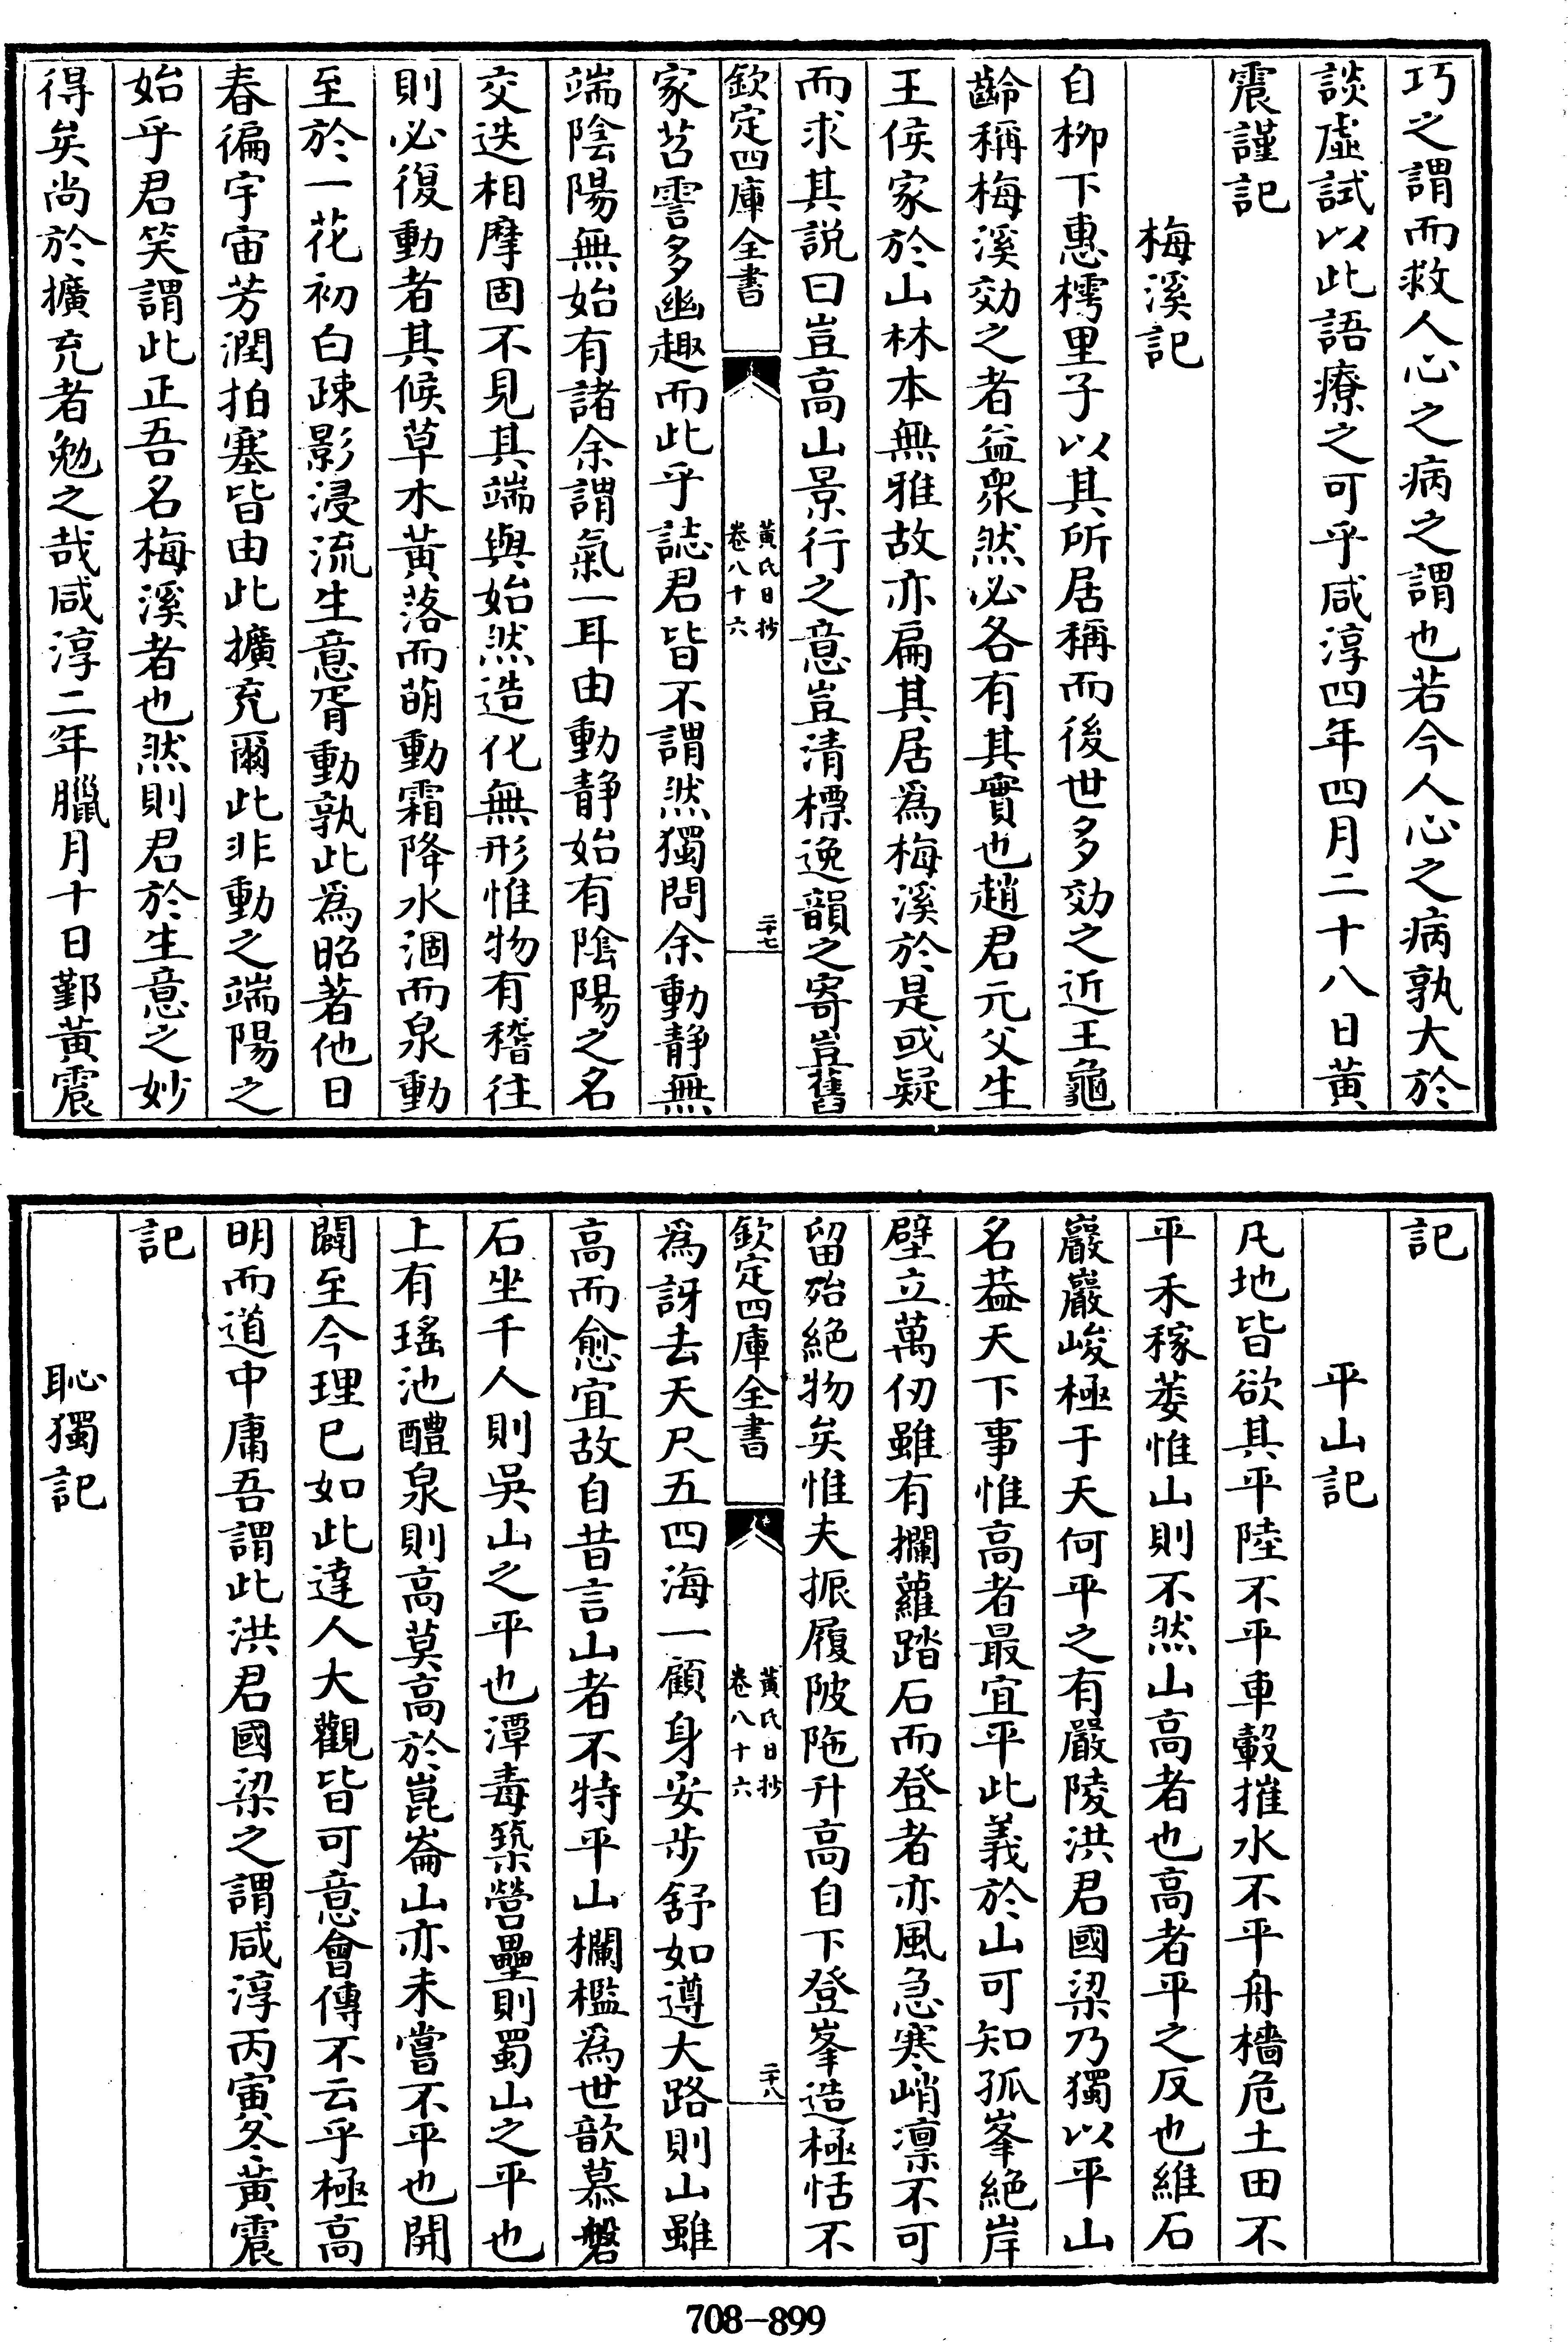 巧之謂而救人心之病之謂也若今人心之病孰大於
談虛試以此語療之可乎咸淳四年四月二十八日黃
震謹記
梅溪記
自柳下惠樗里子以其所居稱而後世多效之近王龜
齡稱梅溪効之者益衆然必各有其實也趙君元父生
王侯家於山林本無雅故亦扁其居爲梅溪於是或疑
而求其說曰豈高山景行之意豈清標逸韻之寄豈舊
欽定四庫全書
黃氏日抄
卷八十六
二十七
家苕霅多幽趣而此乎誌君皆不謂然獨問余動靜無
端陰陽無始有諸余謂氣一耳由動靜始有陰陽之名
交迭相摩固不見其端與始然造化無形惟物有稽往
則必復動者其候草木黃落而萌動霜降水涸而泉動
至於一花初白疎影浸流生意胥動孰此爲昭著他日
春徧宇宙芳潤拍塞皆由此擴充爾此非動之端陽之
始乎君笑謂此正吾名梅溪者也然則君於生意之妙
得矣尚於擴充者勉之哉咸淳二年臘月十日鄞黃震
記
平山記
凡地皆欲其平陸不平車轂摧水不平舟檣危土田不
平禾稼萎惟山則不然山高者也高者平之反也維石
巖巖峻極于天何平之有嚴陵洪君國梁乃獨以平山
名葢天下事惟高者最宜平此義於山可知孤峯絶岸
壁立萬仞雖有攔蘿踏石而登者亦風急寒峭凛不可
留殆絶物矣惟夫振履陂陁升高自下登峯造極恬不
欽定四庫全書
黃氏日抄
卷八十六
二十八
爲訝去天尺五四海一顧身安步舒如遵大路則山雖
高而愈宜故自昔言山者不特平山欄檻爲世歆慕磐
石坐千人則吳山之平也潭毒築營壘則蜀山之平也
上有瑤池醴泉則高莫高於崑崙山亦未嘗不平也開
闢至今理已如此達人大觀皆可意會傳不云乎極高
明而道中庸吾謂此洪君國梁之謂咸淳丙寅冬黃震
記
恥獨記
708-899